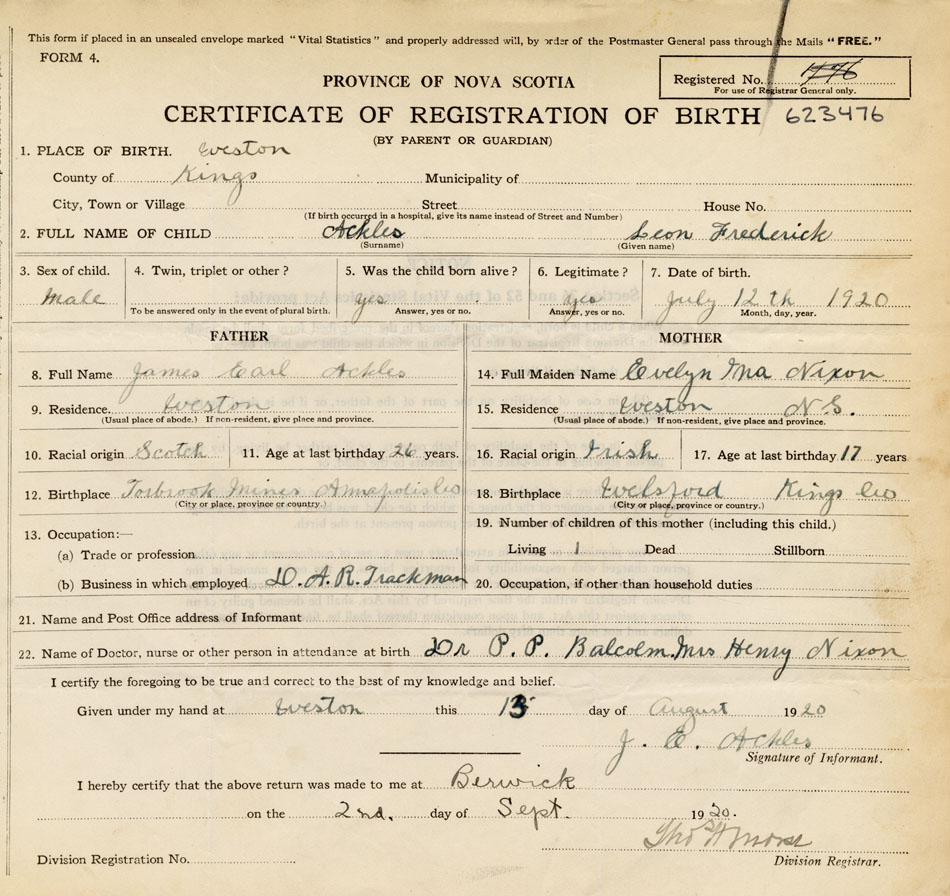 This form if placed in an unsealed envelope marked "Vital Statistics" and properly addressed will, by order of the Postmaster General pass through the Mails "FREE."
FORM 4.
Registered No.
For use of Registrar General only.
PROVINCE OF NOVA SCOTIA
CERTIFICATE OF REGISTRATION OF BIRTH 623476
(BY PARENT OR GUARDIAN)
1. PLACE OF BIRTH. Weston
County of Kings Municipality of
City, Town or Village Street House No.
(If birth occurred in a hospital, give its name instead of Street and Number)
2. FULL NAME OF CHILD Ackles Leon Frederick
(Surname) (Given name)
3. Sex of child. 4. Twin, triplet or other? 5. Was the child born alive? 6. Legitimate? 7. Date of birth.
Male yes yes July 12th 1920
To be answered only in the event of plural birth. Answer, yes or no. Answer, yes or no. Month, day, year.
FATHER MOTHER
8. Full Name James Earl Ackles 14. Full Maiden Name Evelyn Ina Nixon
9. Residence. Weston 15. Residence Weston N.S.
(Usual place of abode.) If non-resident, give place and province. (Usual place of abode.) If non-resident, give place and province.
10. Racial origin Scotch 11. Age at last birthday 26 years. 16. Racial origin Irish 17. Age at last birthday 17 years
12. Birthplace Torbrook Mines Annapolis Co 18. Birthplace Welsford Kings Co
(City or place, province or country.) (City or place, province or country.)
13. Occupation:— 19. Number of children of this mother (including this child.)
(a) Trade or profession Living 1 Dead Stillborn
(b) Business in which employed D.A.R. Trackman 20. Occupation, if other than household duties
21. Name and Post Office address of Informant
22. Name of Doctor, nurse or other person in attendance at birth Dr P. P. Balcolm. Mrs Henry Nixon
I certify the foregoing to be true and correct to the best of my knowledge and belief.
Given under my hand at Weston this 13 day of August 1920
J. E. Ackles
Signature of Informant.
I hereby certify that the above return was made to me at Berwick
on the 2nd. day of Sept. 1920.
Thos H Morse
Division Registration No. Division Registrar.